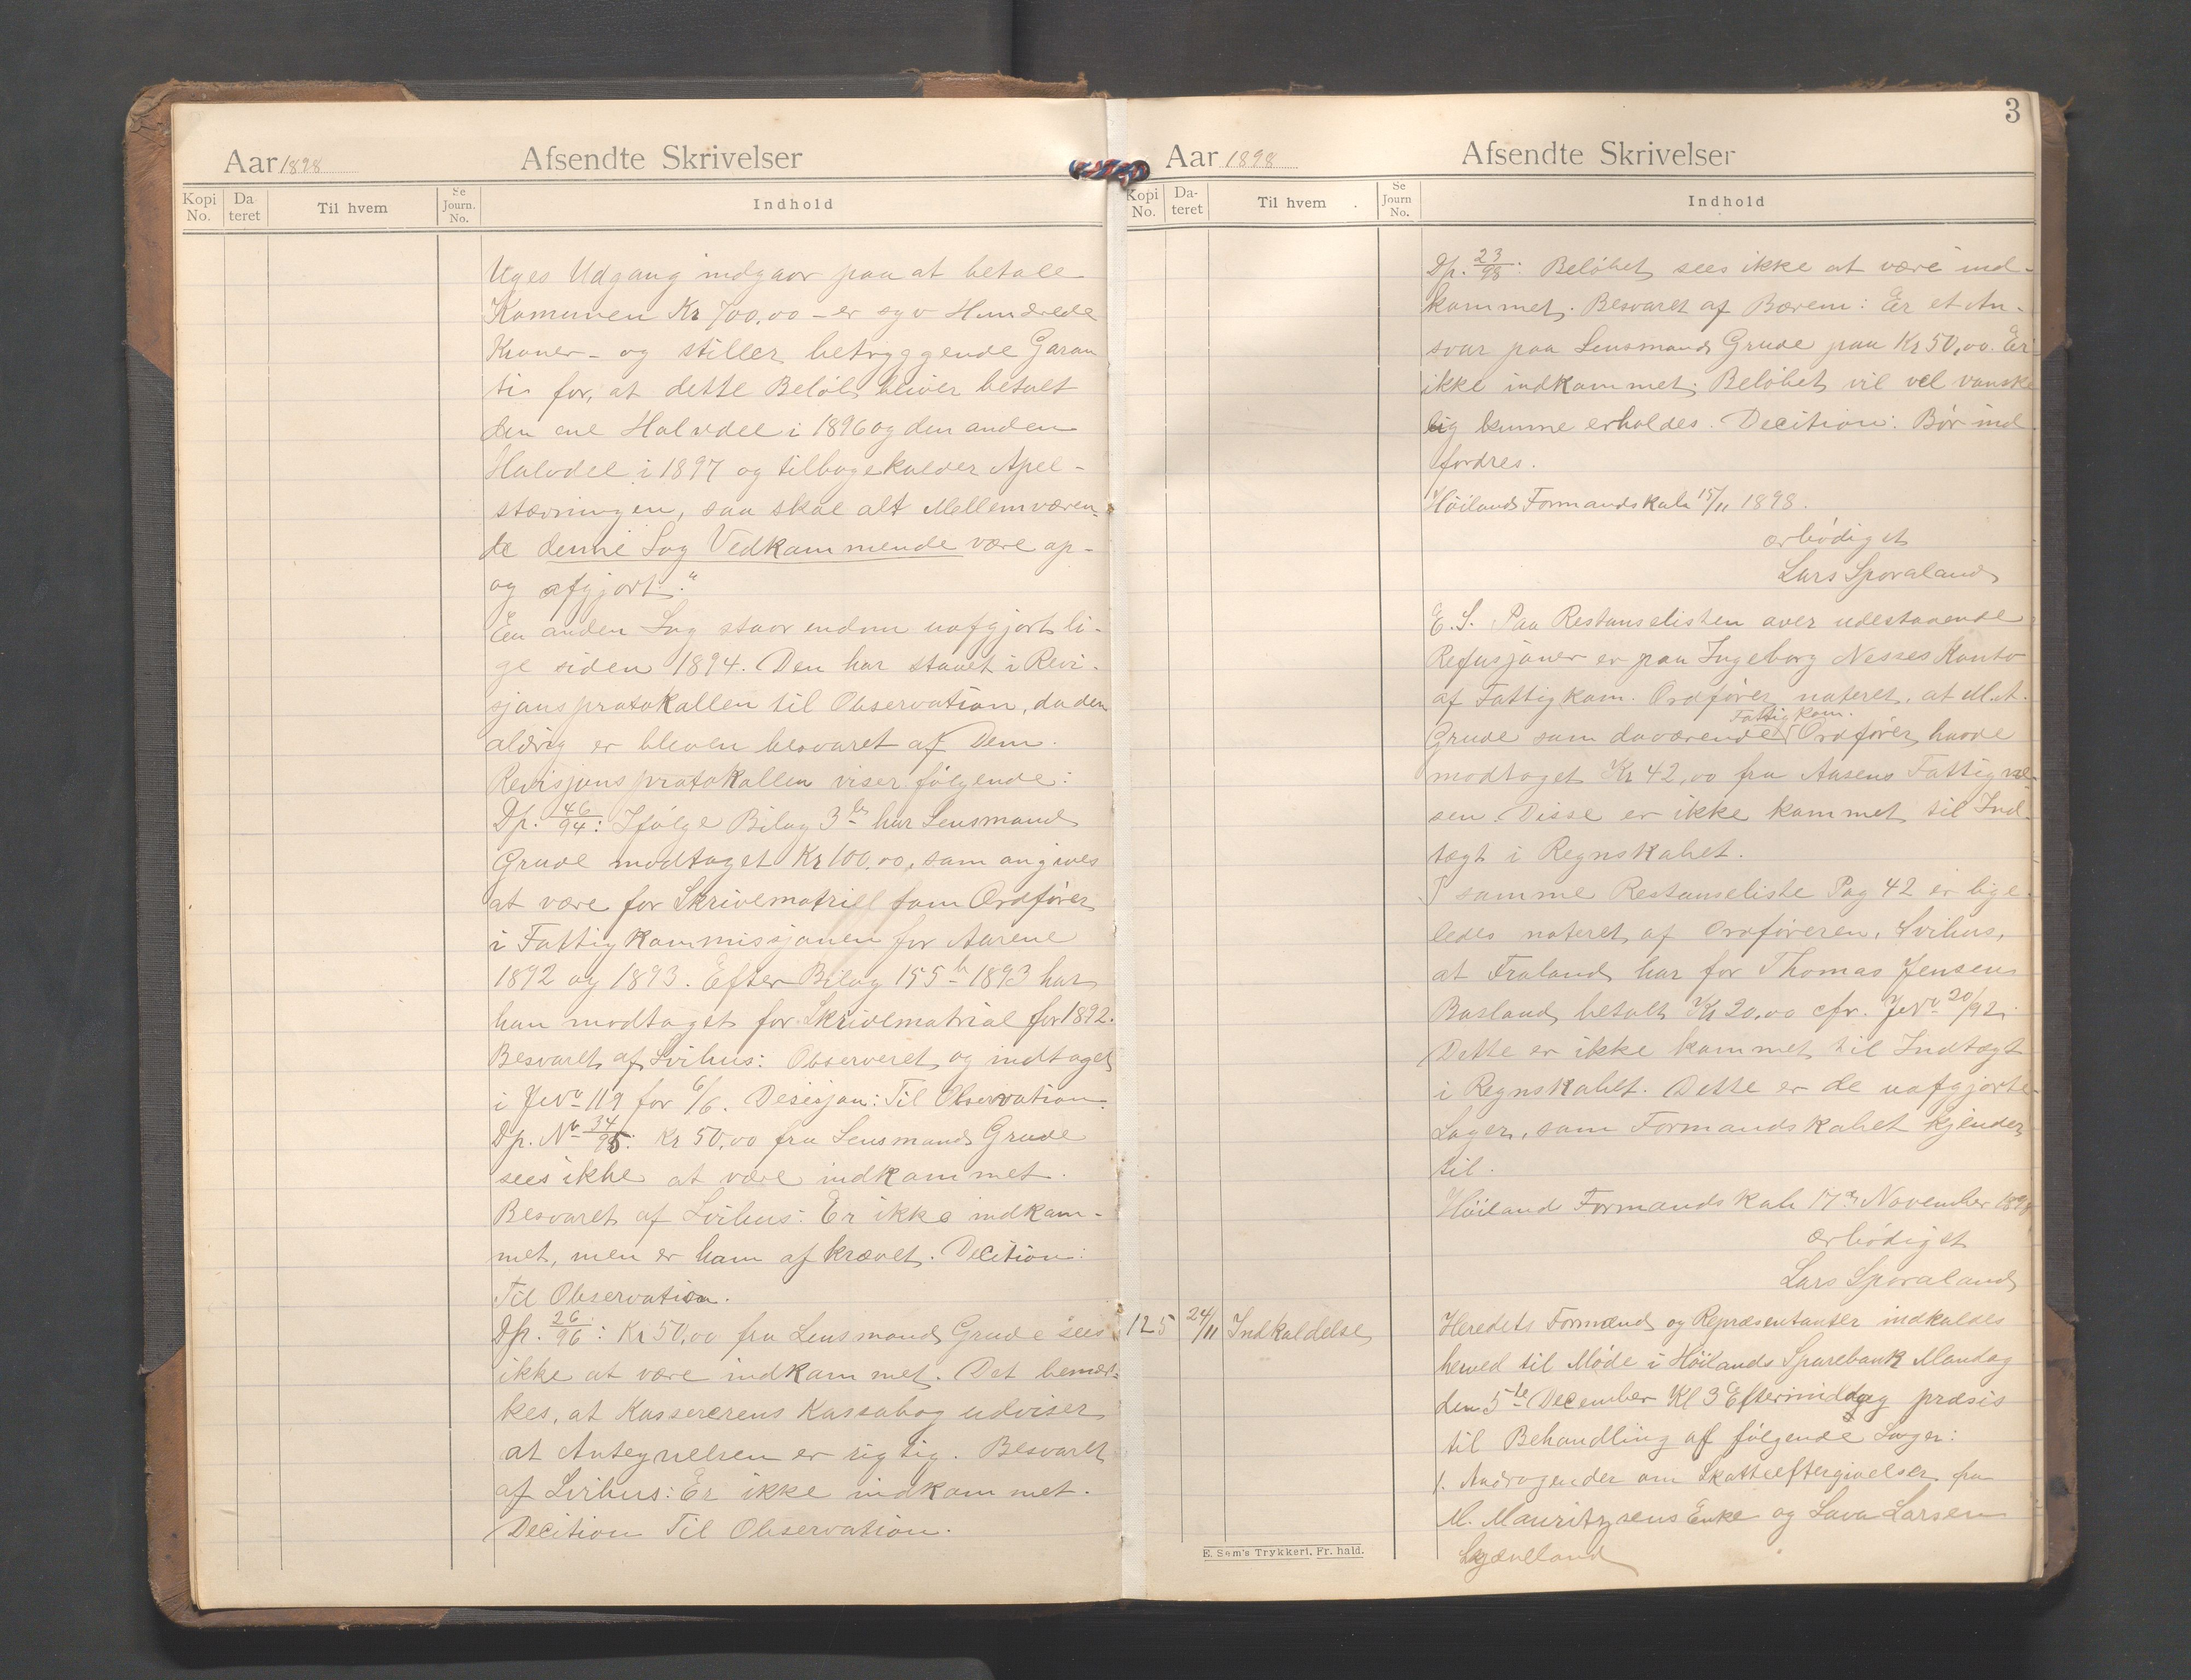 Aar 1898 Afsendte Skrivelser
Kopi No. Da-teret Til hvem Se Journ. No. Indhold
Uges Udgang indgaar paa at betale
Komunen Kr 700.00 – er syv Hundrede
Kroner – og stiller betryggende Garan
ti for, at dette Beløb bliver betalt
den ene Halvdel i 1896 og den anden
Halvdel i 1897 og tilbagekalder Apel-
stævningen, saa skal alt Mellemværen-
de denne Sag Vedkammende være op-
og afgjort."
En anden Sag staar endnu uafgjort li-
ge siden 1894. Den har staaet i Revi-
sjonsprotokollen til Observation, da den
aldrig er bleven besvaret af Dem.
Revisjonsprotokollen viser følgende:
Dp. 46/94: Ifølge Bilag 3 har Lensmand
Grude modtaget Kr 100.00, som angives
at være for Skrivematriell som Ordfører
i Fattigkommissjonen for Aarene
1892 og 1893. Efter Bilag 155 1893 har
han modtaget for Skrivematrial for 1892.
Besvaret af Svihus: Observeret og indtaget
i JNo 119 for 6/6. Desisjon: Til Observation.
Dp. No 34/95: Kr 50.00 fra Lensmand Grude
sees ikke at være indkommet.
Besvaret af Svihus: Er ikke indkom-
met, men er ham afkrævet. Decition:
Til Observation.
Dp. 26/96: Kr 50,00 fra Lensmand Grude sees
ikke at være indkommet. Det bemær-
kes, at Kassererens Kassabog udviser
at Antegnelsen er rigtig. Besvaret
af Svihus: Er ikke indkommet.
Decition Til Observation.
3
Aar 1898 Afsendte Skrivelser
Kopi No. Da-teret Til hvem Se Journ No. Indhold
Dp. 23/98: Beløbet sees ikke at være ind-
kommet. Besvaret af Bærem: Er et An-
svar paa Lensmand Grude paa Kr 50,00. Er
ikke indkommet. Beløbet vil vel vanske
lig kunne erholdes. Decition: Bør ind
fordres.
Höilands Formandskab 15/11 1898.
ærbödigst
Lars Sporaland
E. S. Paa Restanselisten over udestaaende
Refusjoner er paa Ingeborg Nesses Konto
af Fattigkom. Ordfører noteret, at M.A.
Fattigkom.
Grude som daværende Ordfører havde
modtaget Kr 42,00 fra Aasens Fattigvæ-
sen. Disse er ikke kommet til Ind-
tægt i Regnskabet.
I samme Restanseliste Pag 42 er lige-
ledes noteret af Ordføreren, Svihus,
at Fraland har for Thomas Jensen
Busland betalt Kr 20.00 cfr. JNo 20/92.
Dette er ikke kommet til Indtægt
i Regnskabet. Dette er de uafgjorte
Sager, som Formandskabet kjender
til.
Höiland Formandskab 17de November 1898
ærbödigst
Lars Sporaland
125 24/11 Indkaldelse Heredets Formænd og Repræsentanter indkaldes
herved til Møde i Höilands Sparebank Mandag
den 5te December Kl 3 Eftermiddag præsis
til Behandling af følgende Sager:
1. Andragender om Skatteeftergivelser fra
M. Mauritzsens Enke og Lava Larsen
Skjæveland
E. Sem's Trykkeri, Fr. hald.